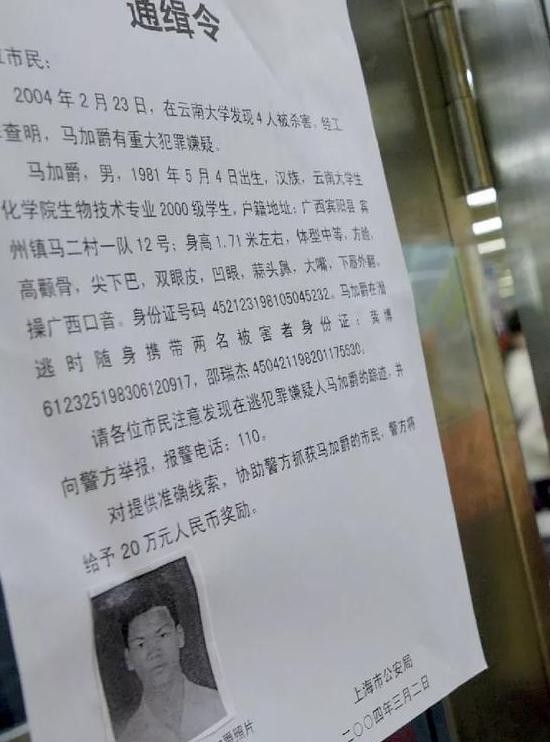 通缉令
市民：
2004年2月23日，在云南大学发现4人被杀害。经工
查明，马加爵有重大犯罪嫌疑。
马加爵，男，1981年5月4日出生，汉族，云南大学生
化学院生物技术专业2000级学生，户籍地址：广西宾阳县宾
州镇马二村一队12号；身高1.71米左右，体型中等，方脸，
高颧骨，尖下巴，双眼皮，凹眼，蒜头鼻，大嘴，下唇外翻，
操广西口音。身份证号码452123198105045232。马加爵在潜
逃时随身携带两名被害者身份证：龚博
612325198306120917，邵瑞杰450421198201175530。
请各位市民注意发现在逃犯罪嫌疑人马加爵的踪迹，并
向警方举报，报警电话：110。
对提供准确线索，协助警方抓获马加爵的市民，警方将
给予20万元人民币奖励。
照片
上海市公安局
二〇〇四年三月二日